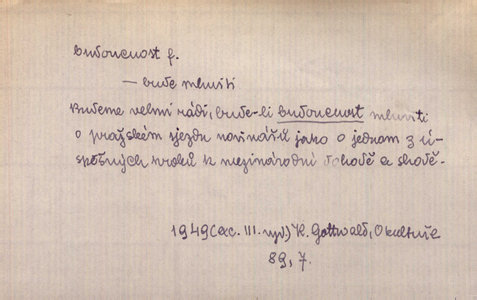 budoucnost f.
— bude mluviti
Budeme velmi rádi, bude-li budoucnost mluviti
o pražském sjezdu novinářů jako o jednom z ú-
spěšných kroků k mezinárodní dohodě a shodě.
1949 (exc. III. vyd.) K. Gottwald, O kultuře
89, 7.